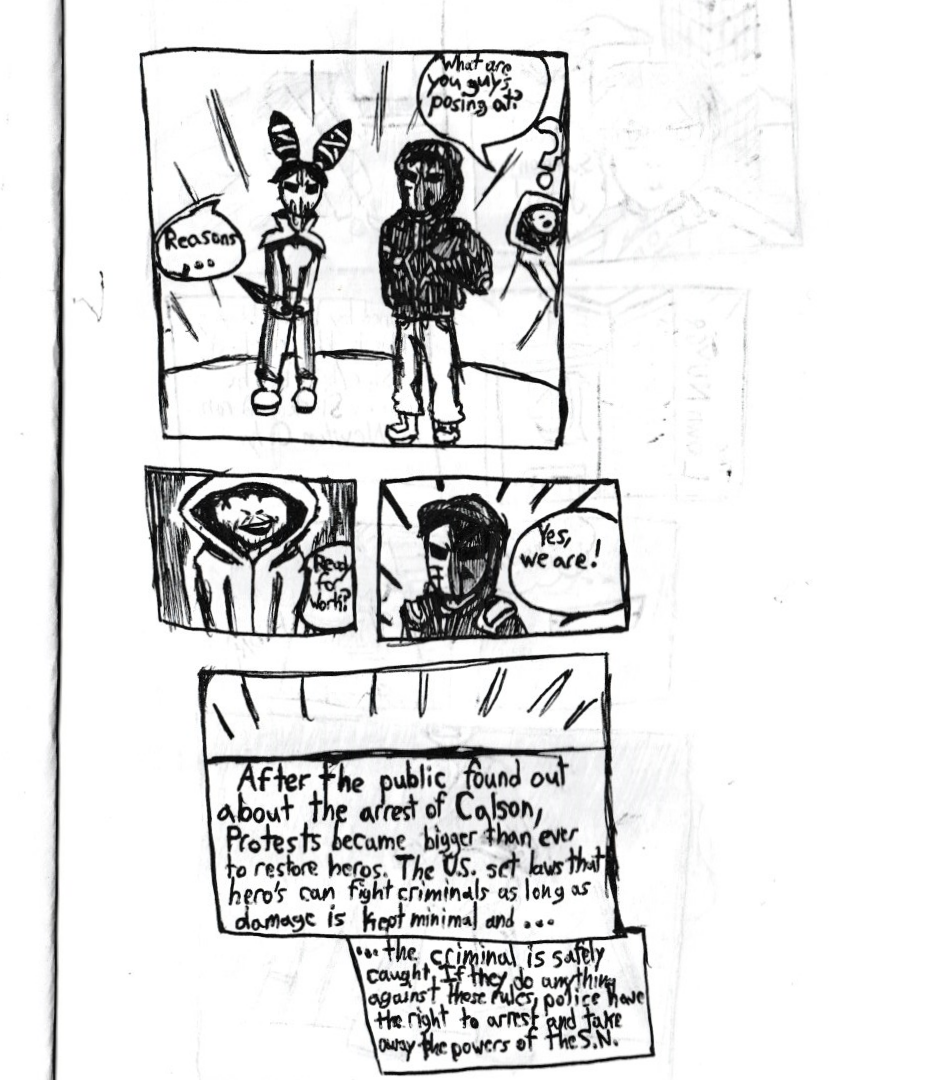 What are
you guys
posing at?
Reasons
...
Read
for
work?
Yes,
we are!
After the public found out
about the arrest of Calson,
Protests became bigger than ever
to restore heros. The U.S. set laws that
hero's can fight criminals as long as
damage is kept minimal and ...
...the criminal is safely
caught. If they do anything
against those rules, police have
the right to arrest and take
away the powers of the S.N.